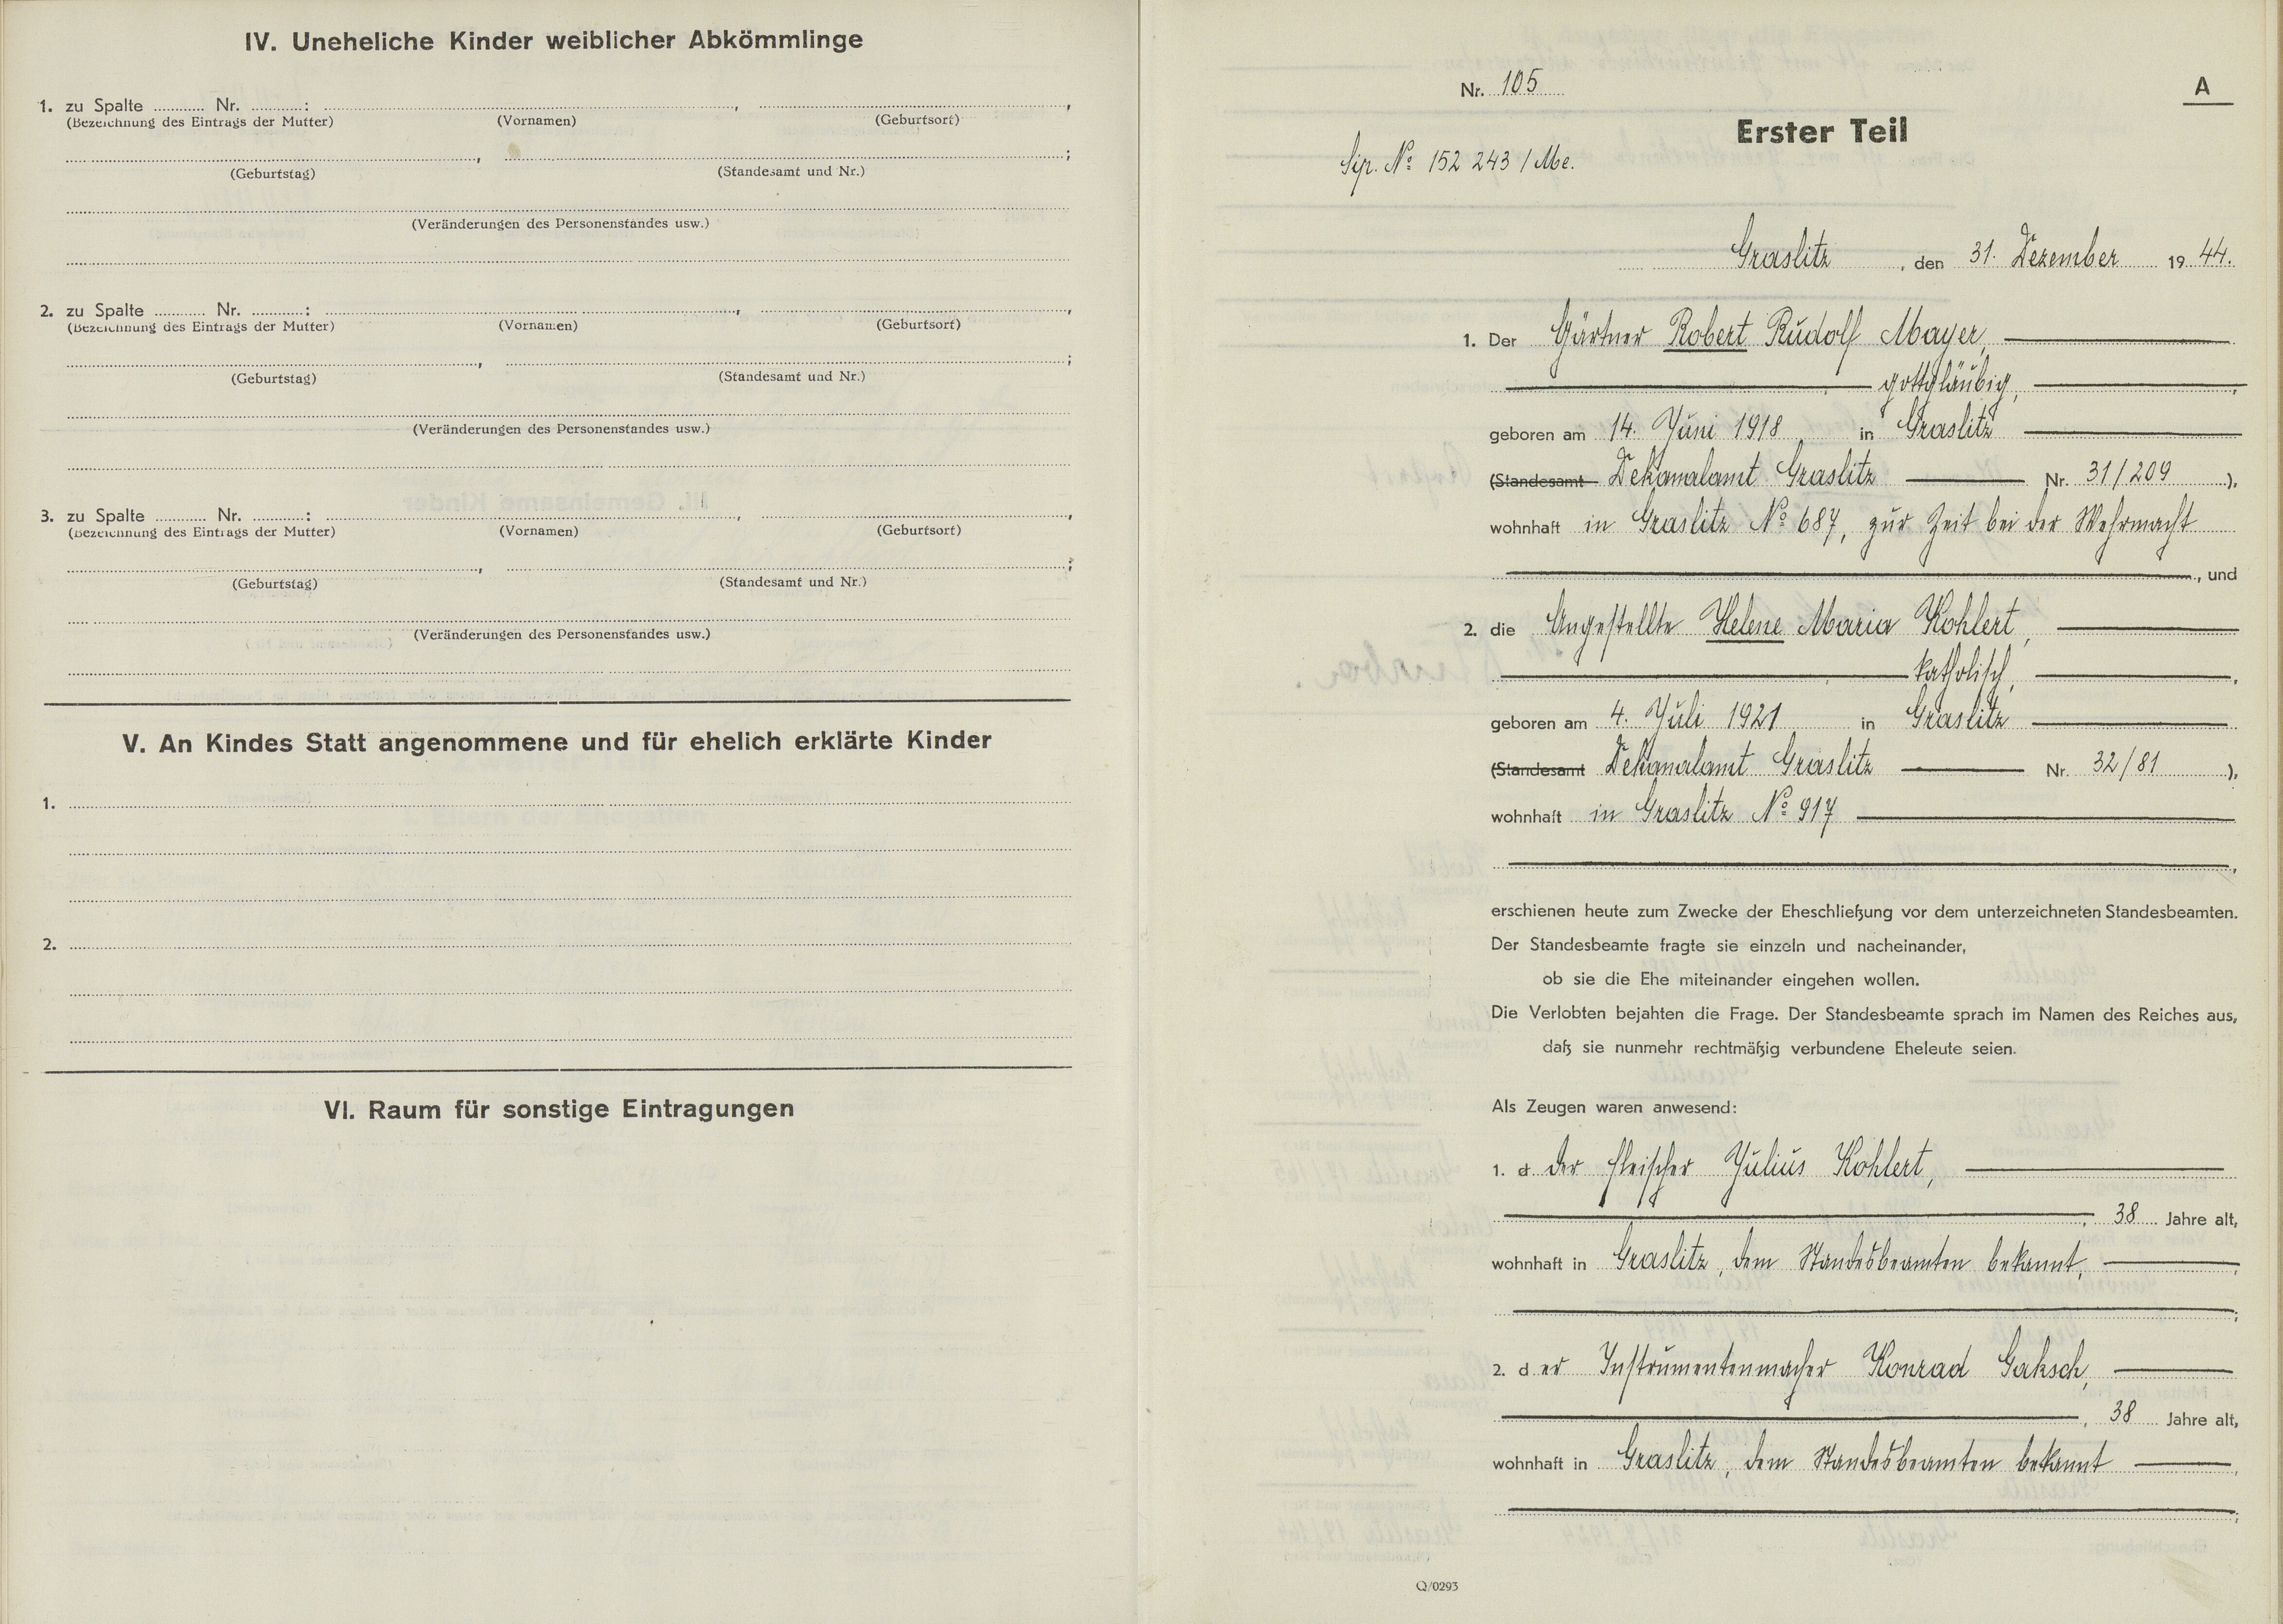 IV. Uneheliche Kinder weiblicher Abkömmlinge
1. zu Spalte ........... Nr. ..........:  ,  ,
(Bezeichnung des Eintrags der Mutter) (Vornamen) (Geburtsort)
, ;
(Geburtstag) (Standesamt und Nr.)
(Veränderungen des Personenstandes usw.)
2. zu Spalte ........... Nr. ..........:  ,  ,
(Bezeichnung des Eintrags der Mutter) (Vornamen) (Geburtsort)
, ;
(Geburtstag) (Standesamt und Nr.)
(Veränderungen des Personenstandes usw.)
3. zu Spalte ........... Nr. ..........:  ,  ,
(Bezeichnung des Eintrags der Mutter) (Vornamen) (Geburtsort)
, ;
(Geburtstag) (Standesamt und Nr.)
(Veränderungen des Personenstandes usw.)
V. An Kindes Statt angenommene und für ehelich erklärte Kinder
1.
2.
VI. Raum für sonstige Eintragungen
Nr. 105
A
Erster Teil
Sip. No 152 243 / Me.
Graslitz, den 31. Dezember 19 44.
1. Der Gärtner Robert Rudolf Mayer,
gottgläubig,
geboren am 14. Juni 1918 in Graslitz
(Standesamt Dekanalamt Graslitz Nr. 31/209 ),
wohnhaft in Graslitz No 687, zur Zeit bei der Wehrmacht
, und
2. die Angestellte Helene Maria Kohlert,
katholisch,
geboren am 4. Juli 1921 in Graslitz
(Standesamt Dekanalamt Graslitz Nr. 32/81 ),
wohnhaft in Graslitz No 917
erschienen heute zum Zwecke der Eheschließung vor dem unterzeichneten Standesbeamten.
Der Standesbeamte fragte sie einzeln und nacheinander,
ob sie die Ehe miteinander eingehen wollen.
Die Verlobten bejahten die Frage. Der Standesbeamte sprach im Namen des Reiches aus,
daß sie nunmehr rechtmäßig verbundene Eheleute seien.
Als Zeugen waren anwesend:
1. d der Fleischer Julius Kohlert,
, 38 Jahre alt,
wohnhaft in Graslitz, dem Standesbeamten bekannt,
;
2. d er Instrumentenmacher Konrad Gaksch,
, 38 Jahre alt,
wohnhaft in Graslitz, dem Standesbeamten bekannt
Q/0293